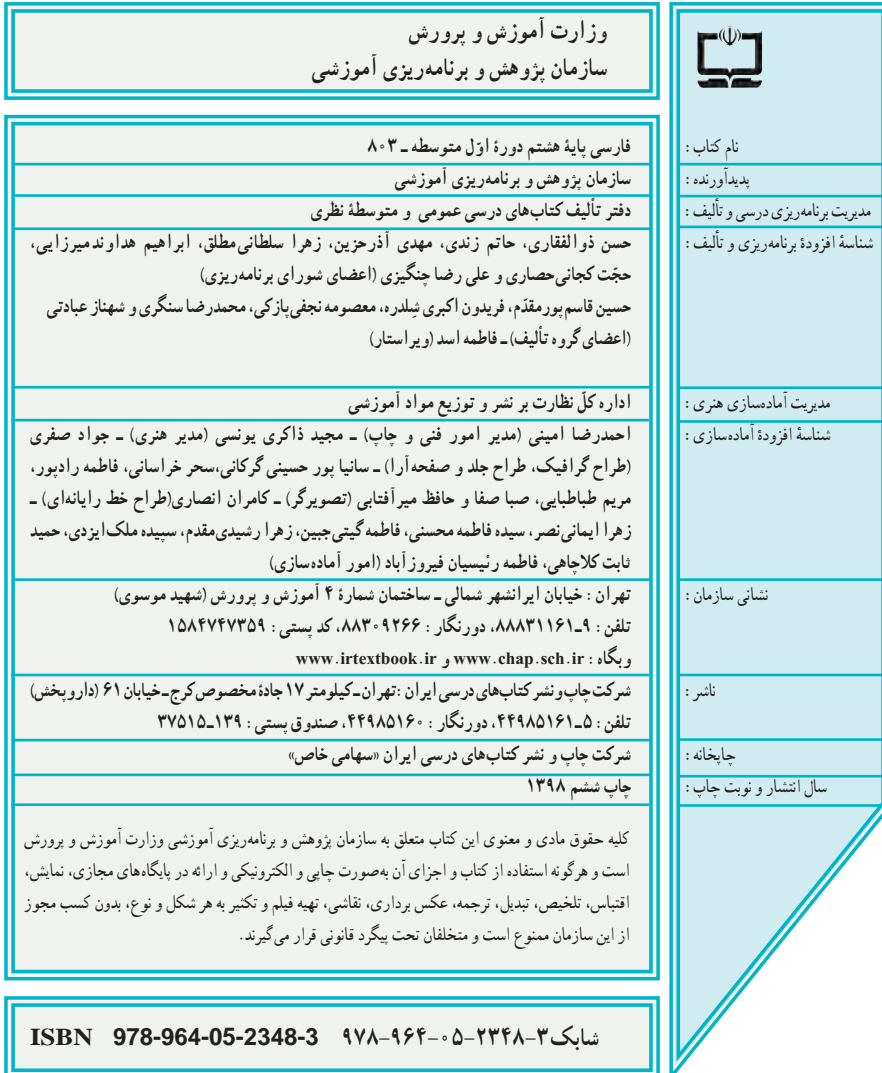 وزارت آموزش و پرورش
سازمان پژوهش و برنامه‌ریزی آموزشی
نام کتاب : فارسی پایهٔ هشتم دورهٔ اوّل متوسطه ـ ۸۰۳
پدیدآورنده : سازمان پژوهش و برنامه‌ریزی آموزشی
مدیریت برنامه‌ریزی درسی و تألیف : دفتر تألیف کتاب‌های درسی عمومی و متوسطهٔ نظری
شناسهٔ افزودهٔ برنامه‌ریزی و تألیف : حسن ذوالفقاری، حاتم زندی، مهدی آذرحزین، زهرا سلطانی‌مطلق، ابراهیم هداوندمیرزایی،
حجّت کجانی‌حصاری و علی رضا چنگیزی (اعضای شورای برنامه‌ریزی)
حسین قاسم‌پورمقدّم، فریدون اکبری شِلدره، معصومه نجفی‌پازکی، محمدرضا سنگری و شهناز عبادتی
(اعضای گروه تألیف) ـ فاطمه اسد (ویراستار)
مدیریت آماده‌سازی هنری : اداره کلّ نظارت بر نشر و توزیع مواد آموزشی
شناسهٔ افزودهٔ آماده‌سازی : احمدرضا امینی (مدیر امور فنی و چاپ) ـ مجید ذاکری یونسی (مدیر هنری) ـ جواد صفری
(طراح گرافیک، طراح جلد و صفحه‌آرا) ـ سانیا پور حسینی گرکانی،سحر خراسانی، فاطمه رادپور،
مریم طباطبایی، صبا صفا و حافظ میرآفتابی (تصویرگر) ـ کامران انصاری(طراح خط رایانه‌ای) ـ
زهرا ایمانی‌نصر، سیده فاطمه محسنی، فاطمه گیتی‌جبین، زهرا رشیدی‌مقدم، سپیده ملک‌ایزدی، حمید
ثابت کلاچاهی، فاطمه رئیسیان فیروزآباد (امور آماده‌سازی)
نشانی سازمان : تهران : خیابان ایرانشهر شمالی ـ ساختمان شمارهٔ ۴ آموزش و پرورش (شهید موسوی)
تلفن : ۹ـ۸۸۸۳۱۱۶۱، دورنگار : ۸۸۳۰۹۲۶۶، کد پستی : ۱۵۸۴۷۴۷۳۵۹
وبگاه : www.chap.sch.ir و www.irtextbook.ir
ناشر : شرکت چاپ و نشر کتاب‌های درسی ایران :تهران ـ کیلومتر ۱۷ جادهٔ مخصوص کرج ـ خیابان ۶۱ (داروپخش)
تلفن : ۵ ـ ۴۴۹۸۵۱۶۱، دورنگار : ۴۴۹۸۵۱۶۰، صندوق پستی : ۱۳۹ـ۳۷۵۱۵
چاپخانه : شرکت چاپ و نشر کتاب‌های درسی ایران «سهامی خاص»
سال انتشار و نوبت چاپ : چاپ ششم ۱۳۹۸
کلیه حقوق مادی و معنوی این کتاب متعلق به سازمان پژوهش و برنامه‌ریزی آموزشی وزارت آموزش و پرورش
است و هرگونه استفاده از کتاب و اجزای آن به‌صورت چاپی و الکترونیکی و ارائه در پایگاه‌های مجازی، نمایش،
اقتباس، تلخیص، تبدیل، ترجمه، عکس برداری، نقاشی، تهیه فیلم و تکثیر به هر شکل و نوع، بدون کسب مجوز
از این سازمان ممنوع است و متخلفان تحت پیگرد قانونی قرار می‌گیرند.
شابک ۳-۲۳۴۸-۰۵-۹۶۴-۹۷۸ ISBN 978-964-05-2348-3